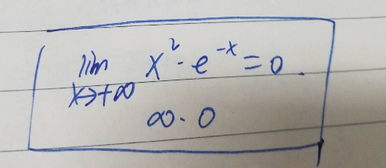 lim x²·e⁻ˣ=0.
x→+∞
∞·0